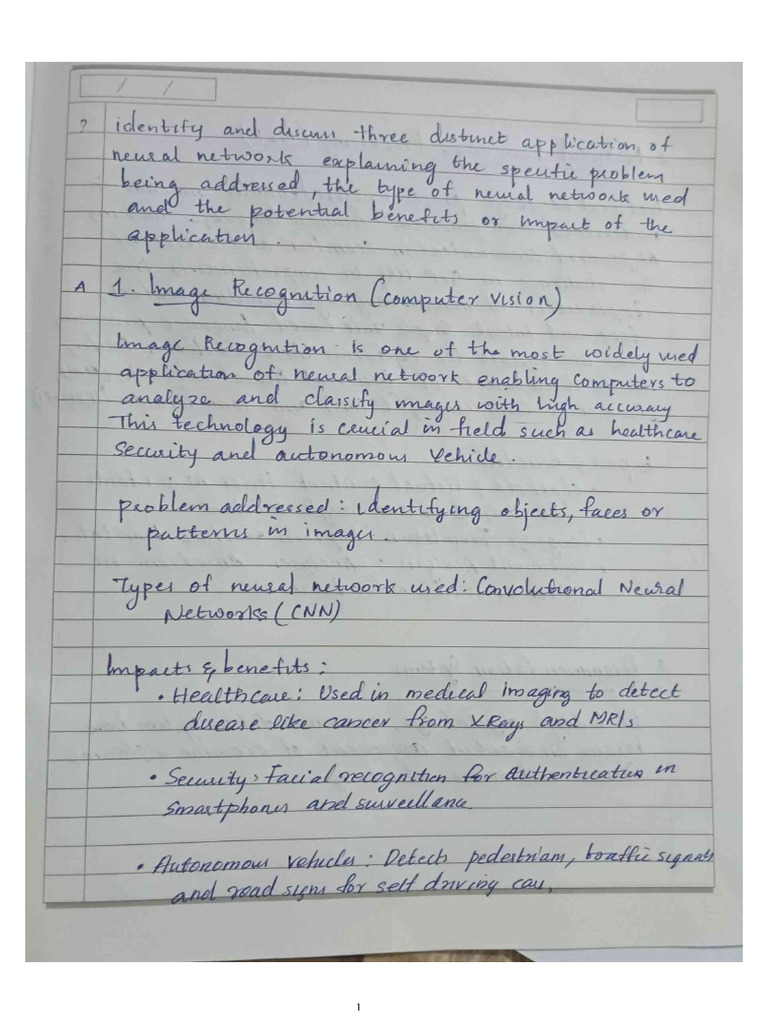 / /
? identify and discuss three distinct application of
neural network explaining the specific problem
being addressed, the type of neural network used
and the potential benefits or impact of the
application.
A 1. Image Recognition (computer vision)
Image Recognition is one of the most widely used
application of neural network enabling computers to
analyze and classify images with high accuracy
This technology is crucial in field such as healthcare
security and autonomous vehicle.
problem addressed: identifying objects, faces or
patterns in images.
Types of neural network used: Convolutional Neural
Networks (CNN)
Impacts & benefits:
• Healthcare: Used in medical imaging to detect
disease like cancer from XRays and MRIs
• Security: Facial recognition for authentication in
smartphones and surveillance
• Autonomous vehicles: Detects pedestrians, traffic signals
and road signs for self driving cars.
1